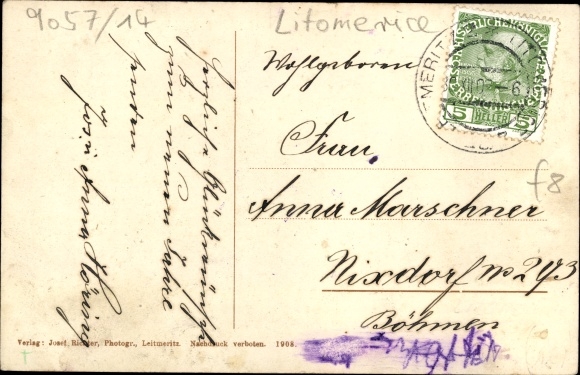 9057/14
Litomerice
Wohlgeboren
Frau
Anna Marschner
Nixdorf No 273
Böhmen
f8
herzliche Glückwünsche
zum neuen Jahre
senden
Jos. u Anna Höring
5 HELLER 5
Verlag: Josef Richter, Photogr., Leitmeritz. Nachdruck verboten. 1908.